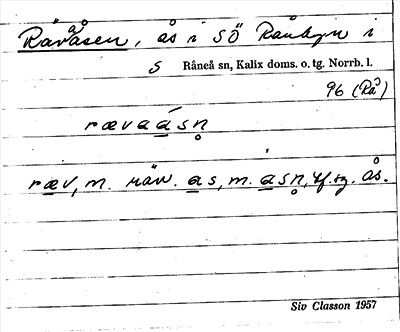 Rävåsen, ås i SÖ Rånbyn i
s Råneå sn, Kalix doms. o. tg. Norrb. l.
96 (Rå)
rævaásn̥
ræv, m. räv. as, m. ásn̥, bf. sg. ås.
Siv Classon 1957